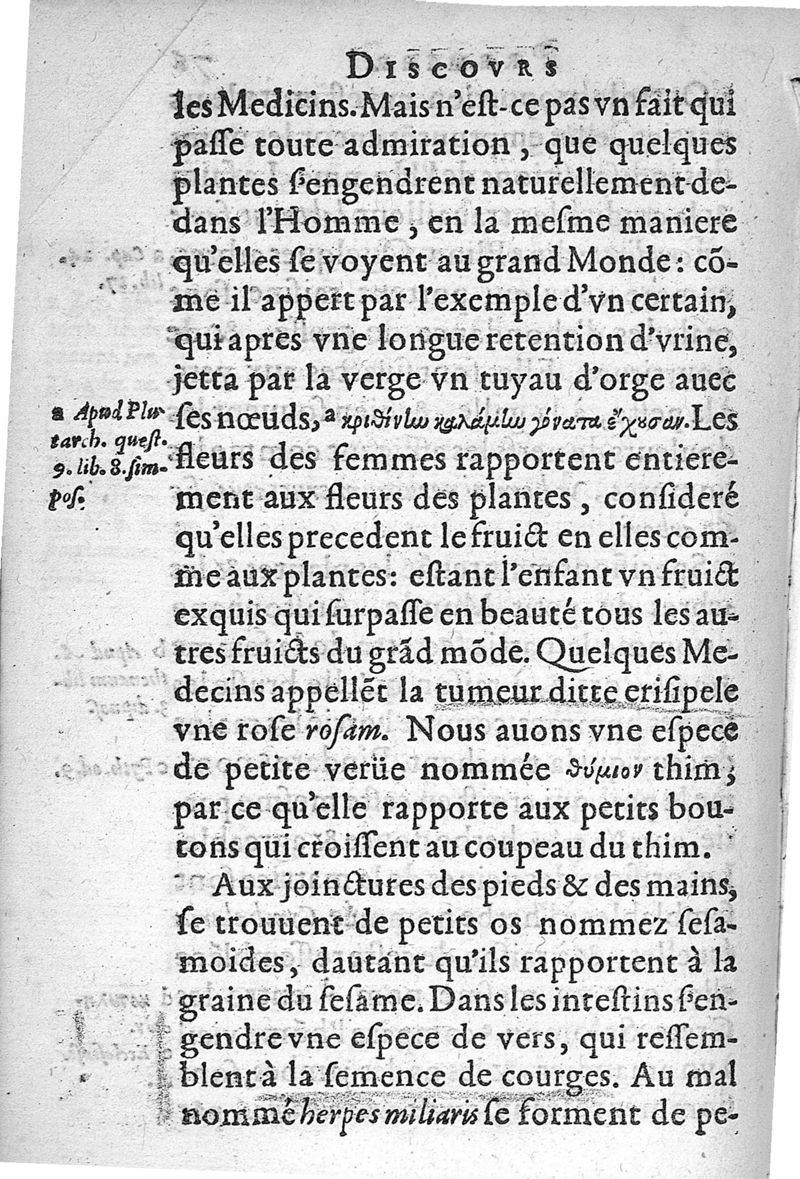 DISCOVRS
les Medicins. Mais n'eſt-ce pas vn fait qui
paſſe toute admiration, que quelques
plantes ſ'engendrent naturellement de-
dans l'Homme, en la meſme maniere
qu'elles ſe voyent au grand Monde: cõ-
me il appert par l'exemple d'vn certain,
qui apres vne longue retention d'vrine,
jetta par la verge vn tuyau d'orge auec
ſes nœuds, ᵃ κριθίνω καλάμω γόνατα ἔχουσαν. Les
fleurs des femmes rapportent entiere-
ment aux fleurs des plantes, conſideré
qu'elles precedent le fruict en elles com-
me aux plantes: eſtant l'enfant vn fruict
exquis qui ſurpaſſe en beauté tous les au-
tres fruicts du grãd mõde. Quelques Me-
decins appellẽt la tumeur ditte eriſipele
vne roſe roſam. Nous auons vne eſpece
de petite verüe nommée θύμιον thim;
par ce qu'elle rapporte aux petits bou-
tons qui croiſſent au coupeau du thim.
Aux joinctures des pieds & des mains,
ſe trouuent de petits os nommez ſeſa-
moides, dautant qu'ils rapportent à la
graine du ſeſame. Dans les inteſtins ſ'en-
gendre vne eſpece de vers, qui reſſem-
blent à la ſemence de courges. Au mal
nommé herpes miliaris ſe forment de pe-
a Apud Plu
tarch. queſt.
9. lib. 8. ſim-
poſ.